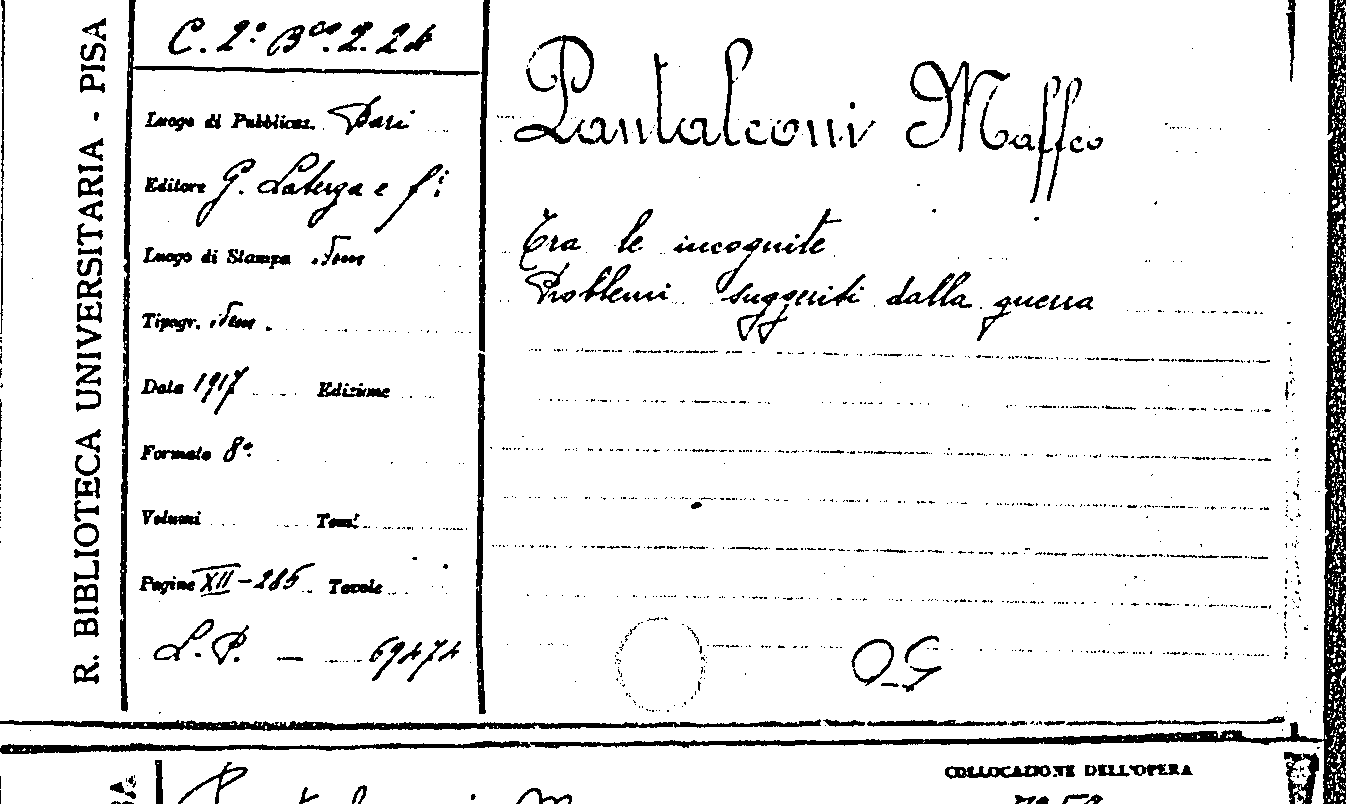 R. BIBLIOTECA UNIVERSITARIA - PISA
C. 2° B^co. 2. 24
Luogo di Pubblicaz. Bari
Editore G. Laterza e f^i
Luogo di Stampa
Tipogr.
Data 1917 Edizione
Formato 8°
Volumi Tomi
Pagine XII-285 Tavole
L.P. — 69474
Pantaleoni Maffeo
Tra le incognite
Problemi suggeriti dalla guerra
COLLOCAZIONE DELL'OPERA